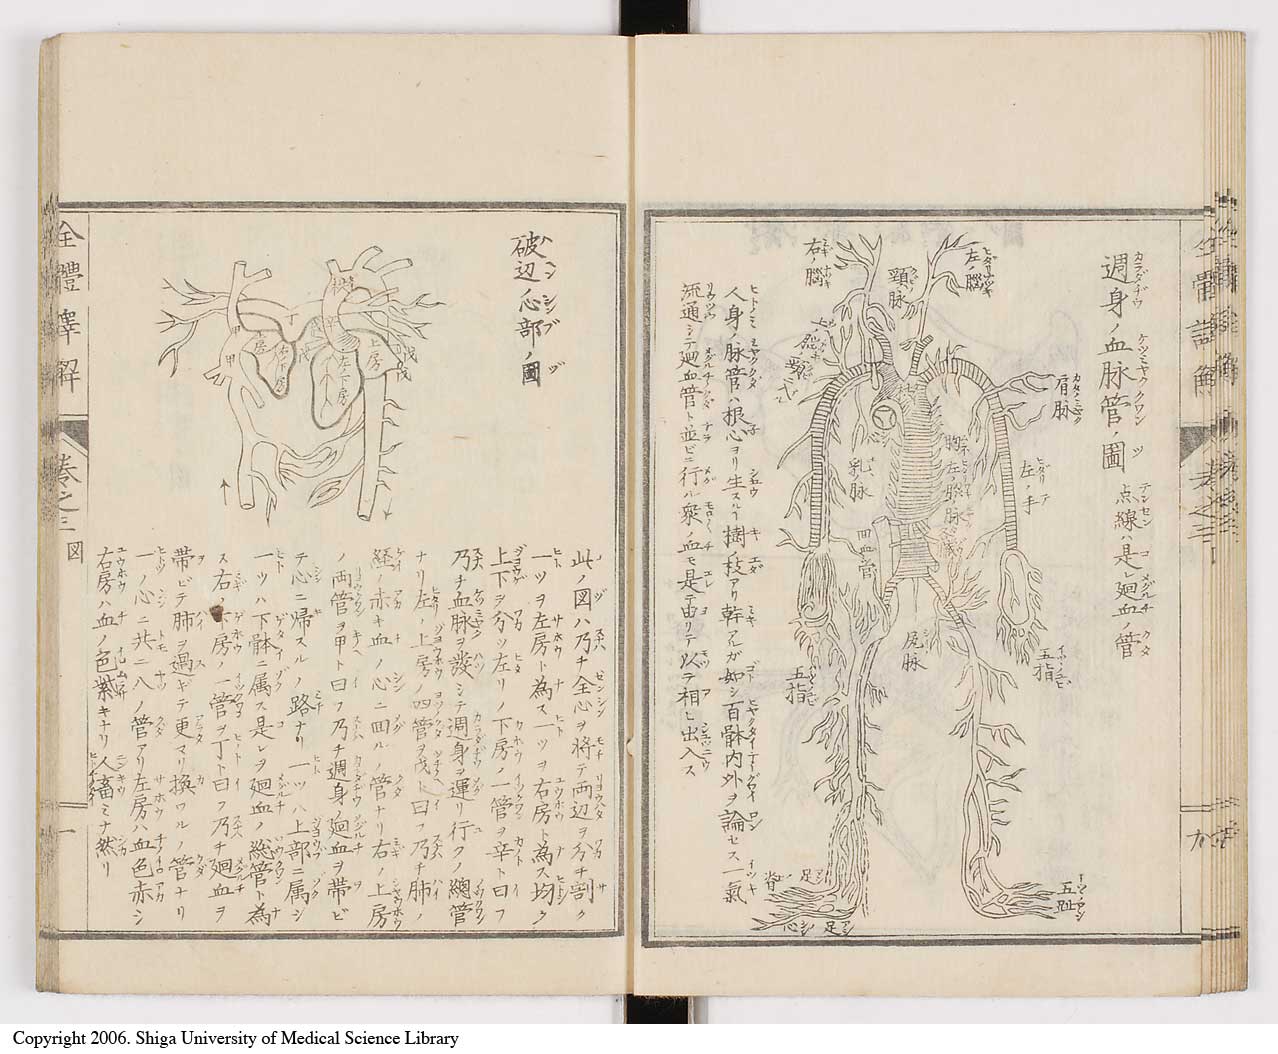 週身ノ血脉管ノ圖
点線ハ是レ廻血ノ管
左ノ腦
頸脉
右ノ腦
肩脉
左ノ手
胸
乳ノ脉
回血管
尻脉
五指
五指
五趾
足
足心
人身ノ脉管ハ根心ヨリ生スル樹ノ枝アリ幹アルガ如シ百骸内外ヲ論セス一氣
流通シテ廻血管ト並ビニ行ル衆ノ血モ是ニ由リテ以テ相ヒ出入ス
全體
卷之三
破辺ノ心部ノ圖
上房
左下房
右下房
甲
甲
丁
戊
戊
此ノ図ハ乃チ全心ヲ将テ両辺ヲ分チ割ク
一ツヲ左房ト為ス一ツヲ右房ト為ス均ク
上下ヲ分ツ左リノ下房ノ一管ヲ辛ト曰フ
乃チ血脉ヲ發シテ週身ヲ運リ行クノ總管
ナリ左ノ上房ノ四管ヲ戊ト曰フ乃チ肺ノ
経ノ赤キ血ノ心ニ回ルノ管ナリ右ノ上房
ノ両管ヲ甲ト曰フ乃チ週身ノ廻血ヲ帯ビ
テ心ニ帰スルノ路ナリ一ツハ上部ニ属シ
一ツハ下骵ニ属ス是レヲ廻血ノ総管ト為
ス右ノ下房ノ一管ヲ丁ト曰フ乃チ廻血ヲ
帯ビテ肺ヲ過ギテ更マリ換ワルノ管ナリ
一ノ心ニ共ニ八ノ管アリ左房ハ血色赤シ
右房ハ血ノ色紫キナリ人畜ミナ然リ
全體譯解
卷之三
図
一
Copyright 2006. Shiga University of Medical Science Library